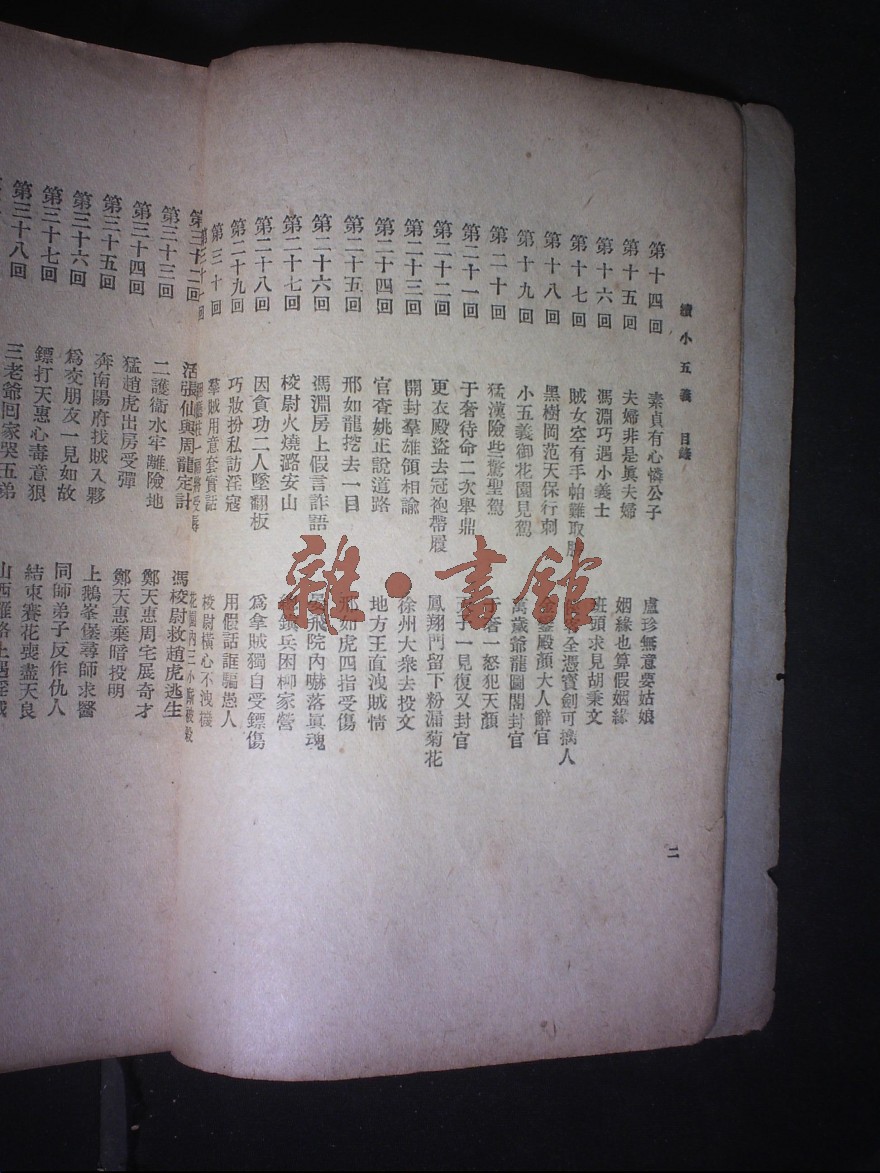 續小五義 目錄
第十四回 素貞有心憐公子 盧珍無意要姑娘
第十五回 夫婦非是眞夫婦 姻緣也算假姻緣
第十六回 馮淵巧遇小義士 班頭求見胡秉文
第十七回 賊女空有手帕難取勝 全憑寶劍可擒人
第十八回 黑樹岡范天保行刺 殿顏大人辭官
第十九回 小五義御花園見駕 萬歲爺龍圖閣封官
第二十回 猛漢險些驚聖駕 于奢一怒犯天顏
第二十一回 于奢待命二次舉鼎 天子一見復又封官
第二十二回 更衣殿盜去冠袍帶履 鳳翔門留下粉漏菊花
第二十三回 開封羣雄領相諭 徐州大衆去投文
第二十四回 官查姚正說道路 地方王直洩賊情
第二十五回 邢如龍挖去一目 邢如虎四指受傷
第二十六回 馮淵房上假言詐語 晏飛院內嚇落眞魂
第二十七回 校尉火燒潞安山 總鎮兵困柳家營
第二十八回 因貪功二人墜翻板 爲拿賊獨自受鏢傷
第二十九回 巧妝扮私訪淫寇 用假話誆騙愚人
第三十回 羣賊用意套實話 校尉橫心不洩機
第三十一回
第三十二回 活張仙與周龍定計 馮校尉救趙虎逃生
第三十三回 二護衛水牢離險地 鄭天惠周宅展奇才
第三十四回 猛趙虎出房受彈 鄭天惠棄暗投明
第三十五回 奔南陽府找賊入夥 上鵝峯堡尋師求醫
第三十六回 爲交朋友一見如故 同師弟子反作仇人
第三十七回 鏢打天惠心毒意狠 結束賽花喪盡天良
第三十八回 三老爺回家哭五弟
二
雜·書館